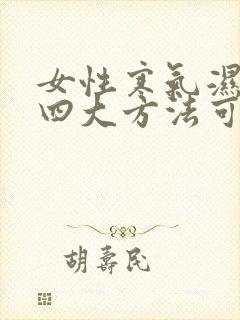 女性寒氣濕
四大方法可
胡壽民